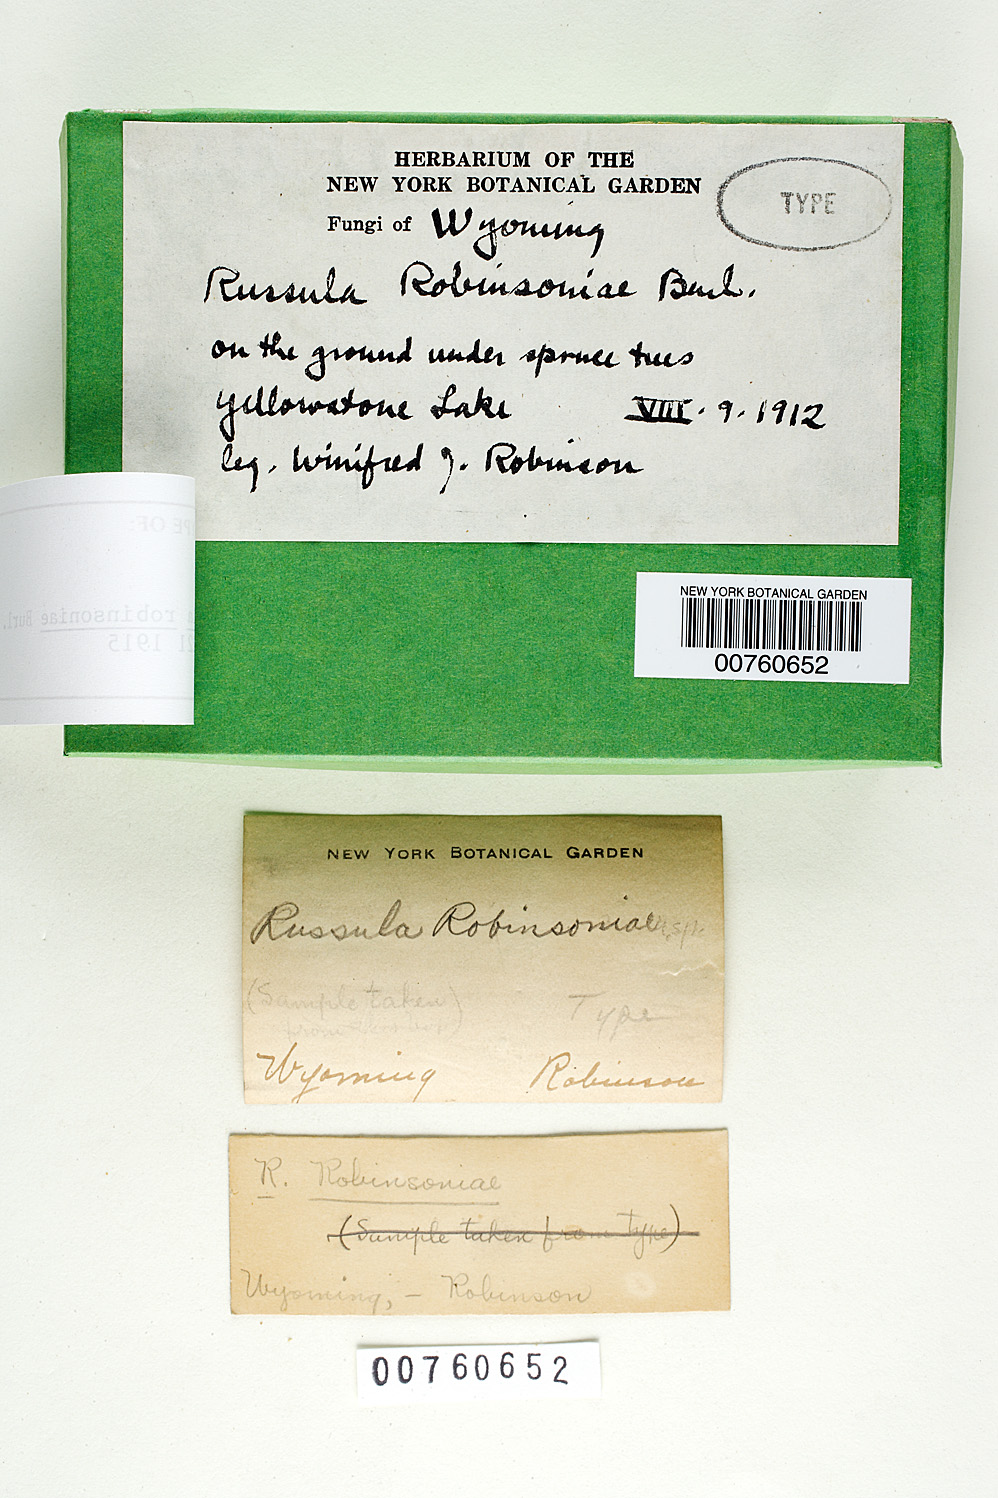 HERBARIUM OF THE
NEW YORK BOTANICAL GARDEN
TYPE
Fungi of Wyoming
Russula Robinsoniae Burl.
on the ground under spruce trees
Yellowstone Lake VIII. 9. 1912
leg. Winifred J. Robinson
PE OF:
robinsoniae Burl.
1915
NEW YORK BOTANICAL GARDEN
00760652
NEW YORK BOTANICAL GARDEN
Russula Robinsoniae n. sp.
(Sample taken)
Type
Wyoming Robinson
R. Robinsoniae
(Sample taken from type)
Wyoming, – Robinson
00760652